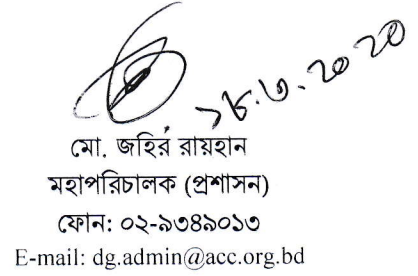 ১৮.৩.২০২০
মো. জহির রায়হান
মহাপরিচালক (প্রশাসন)
ফোন: ০২-৯৩৪৯০১৩
E-mail: dg.admin@acc.org.bd